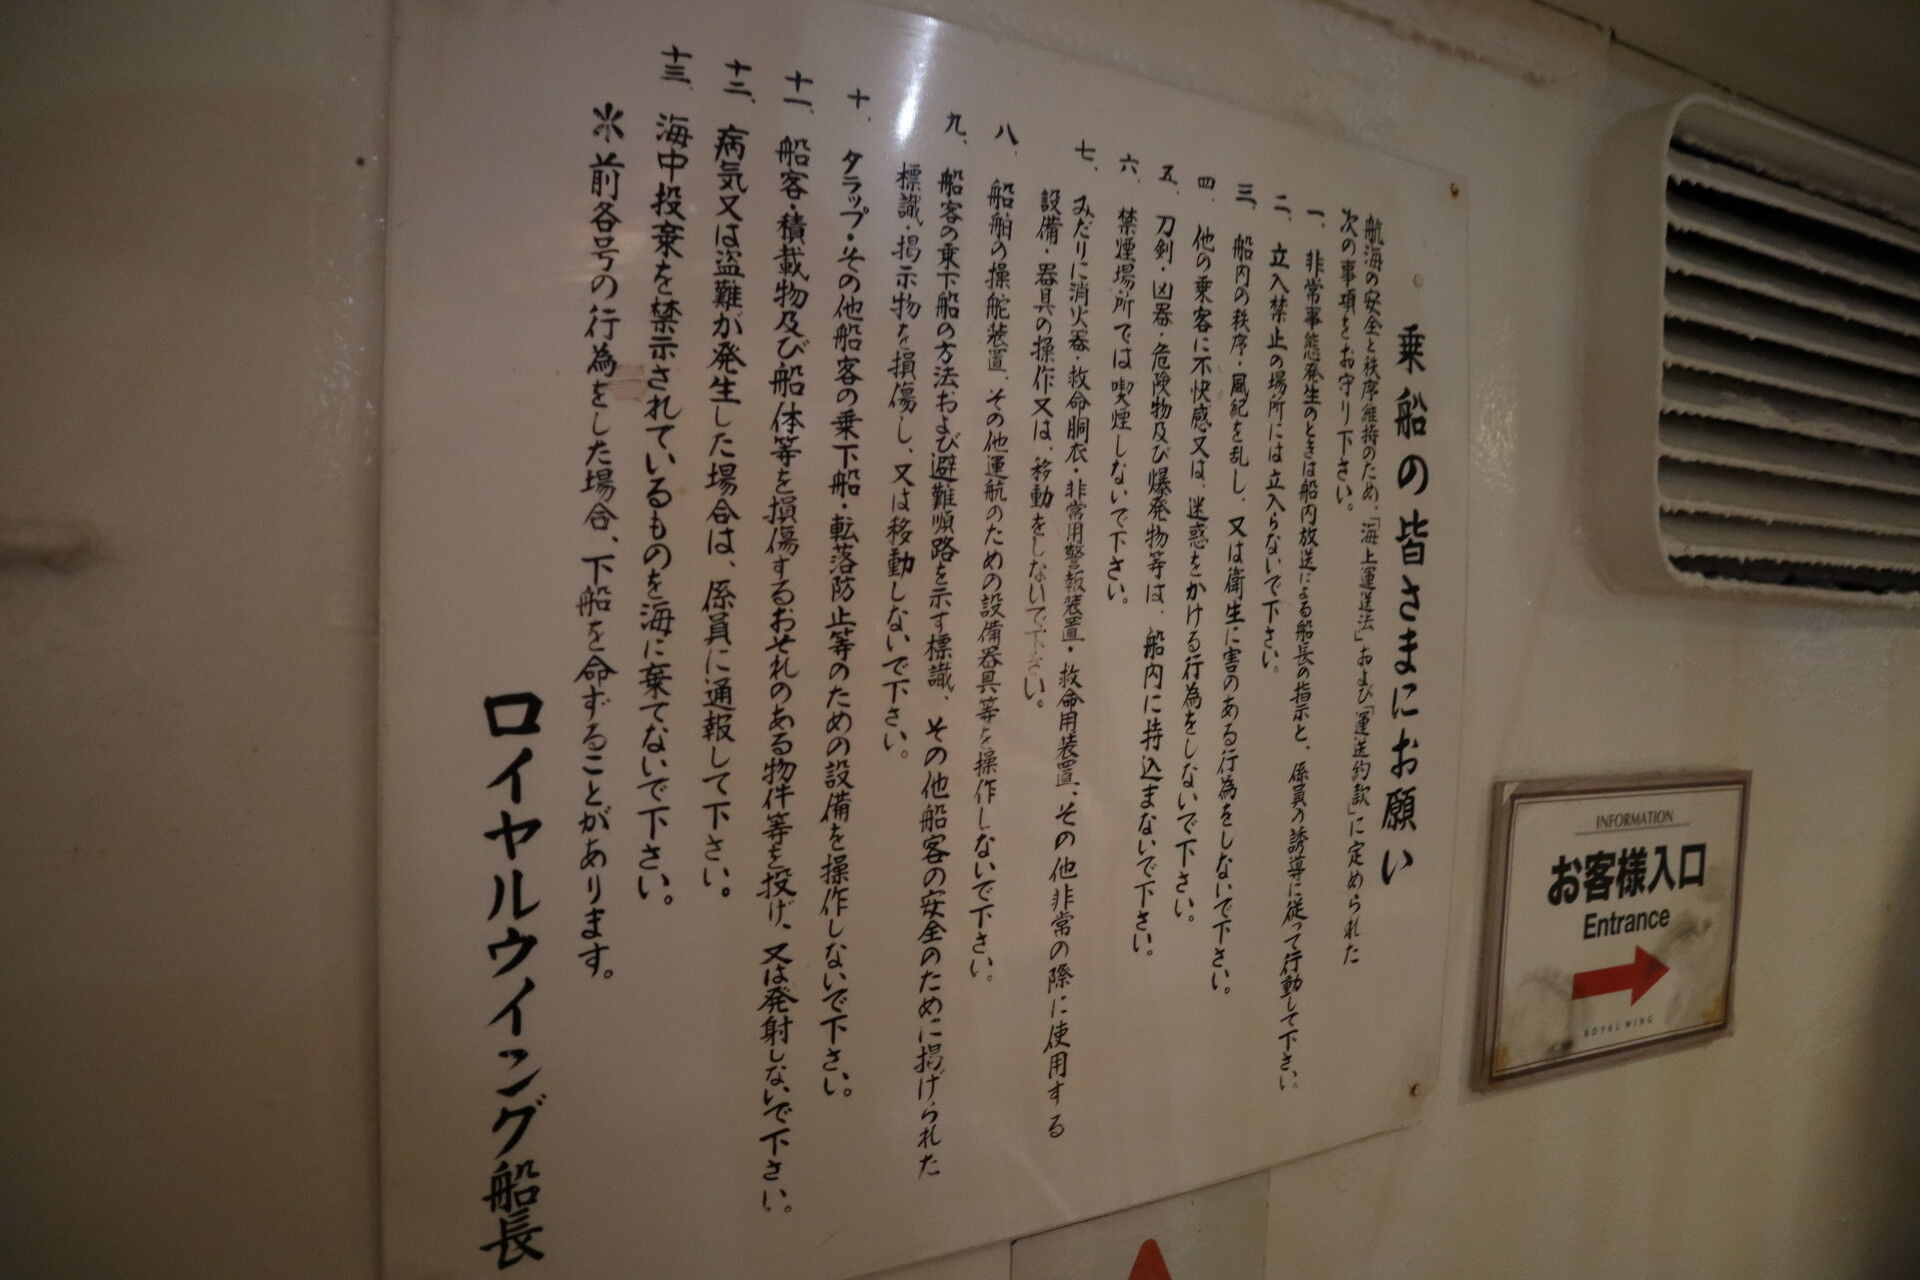 乗船の皆さまにお願い
航海の安全と秩序維持のため、「海上運送法」および「運送約款」に定められた
次の事項をお守り下さい。
一、非常事態発生のときは船内放送による船長の指示と、係員の誘導に従って行動して下さい。
二、立入禁止の場所には立入らないで下さい。
三、船内の秩序・風紀を乱し、又は衛生に害のある行為をしないで下さい。
四、他の乗客に不快感又は、迷惑をかける行為をしないで下さい。
五、刀剣・凶器・危険物及び爆発物等は、船内に持込まないで下さい。
六、禁煙場所では喫煙しないで下さい。
七、みだりに消火器・救命胴衣・非常用警報装置・救命用装置、その他非常の際に使用する
設備・器具の操作又は、移動をしないで下さい。
八、船舶の操舵装置、その他運航のための設備器具等を操作しないで下さい。
九、船客の乗下船の方法および避難順路を示す標識、その他船客の安全のために掲げられた
標識・掲示物を損傷し、又は移動しないで下さい。
十、タラップ・その他船客の乗下船・転落防止等のための設備を操作しないで下さい。
十一、船客・積載物及び船体等を損傷するおそれのある物件等を投げ、又は発射しないで下さい。
十二、病気又は盗難が発生した場合は、係員に通報して下さい。
十三、海中投棄を禁示されているものを海に棄てないで下さい。
※前各号の行為をした場合、下船を命ずることがあります。
ロイヤルウイング船長
INFORMATION
お客様入口
Entrance
ROYAL WING